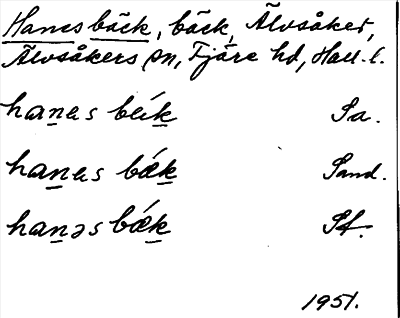 Hanes bäck, bäck, Älvsåker,
Älvsåkers sn, Fjäre hd, Hall. l.
hanas bæ̂k Sa.
hanas bǽk Sand.
hanəs bǽk Sf.
1951.